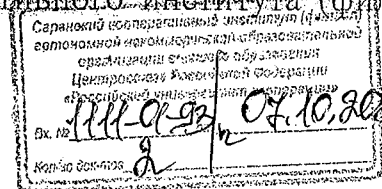 льного института (фи
Саранский кооперативный институт (филиал)
автономной некоммерческой образовательной
организации высшего образования
Центросоюза Российской Федерации
«Российский университет кооперации»
Вх. № 1111-01-93 07.10.202
Кол-во док-тов 2